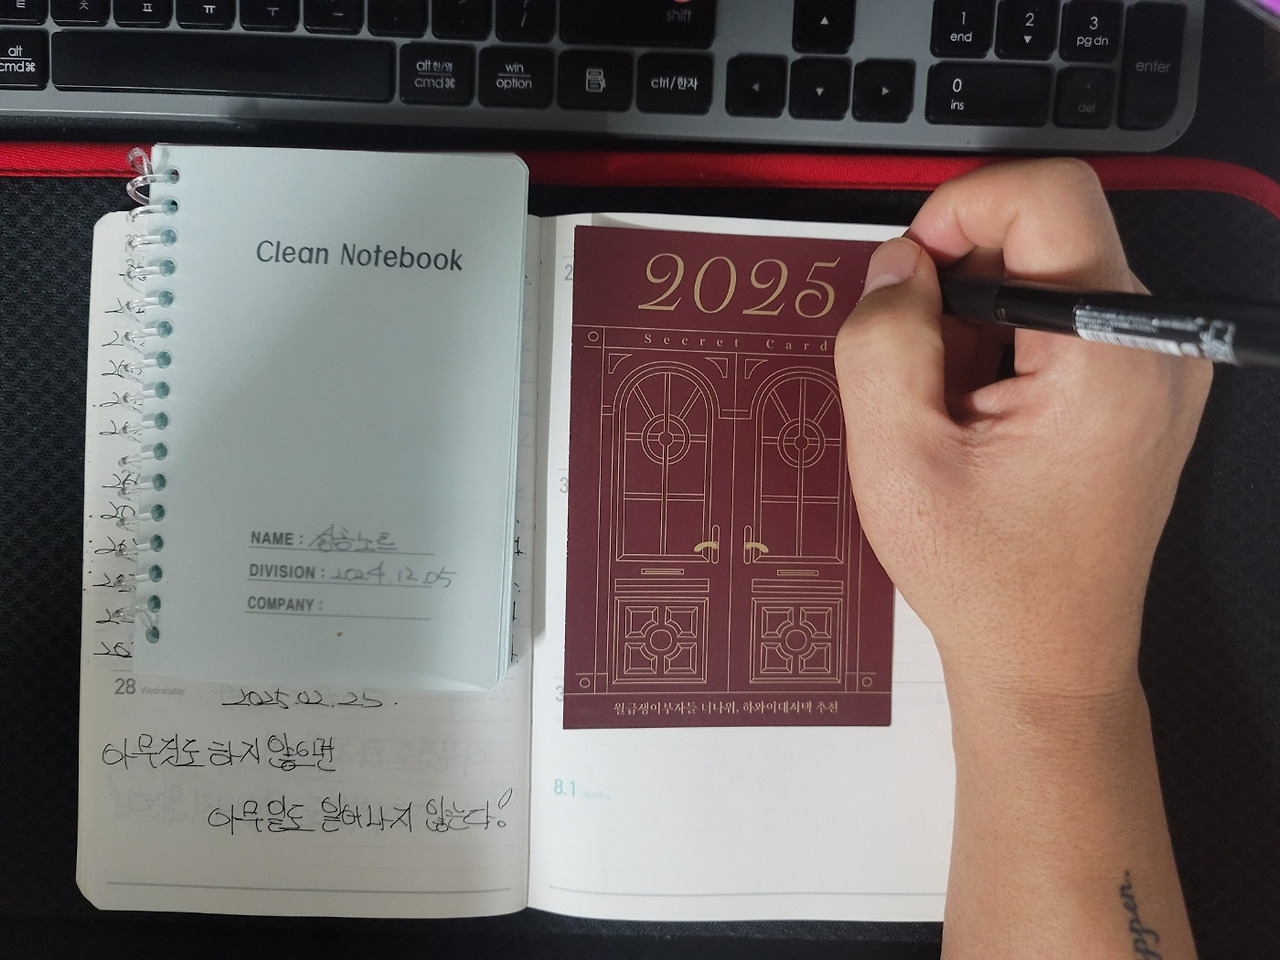 ㅊ ㅍ ㅠ ㅜ ㅡ
shift
1 end
2
3 pg dn
alt
cmd⌘
alt 한/영
cmd⌘
win
option
ctrl/한자
0 ins
del
enter
Clean Notebook
NAME : 성공노트
DIVISION : 2024 12.05
COMPANY :
28 Wednesday
2025.02.25.
아무것도 하지 않으면
아무일도 일어나지 않는다!
2025
Secret Card
월급쟁이부자들 너나위, 하와이대저택 추천
8.1 Sunday
ppen.